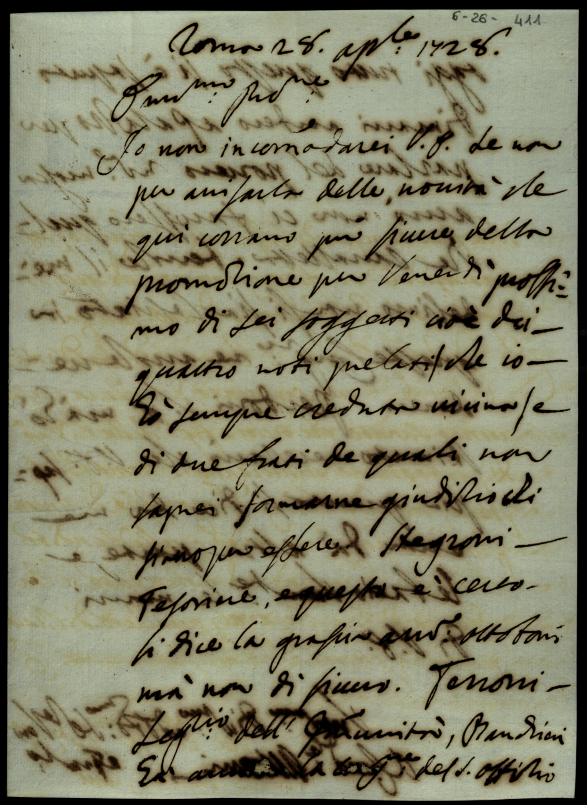 6-26- 411
Roma 28. aple 1728.
Io non incomodarei V.S. se non
per avisarla delle novità che
qui corrano più sicure della
promozione per Venerdì prossi=
mo di sei soggetti cioè dei
quattro noti prelati / che io
hò sempre creduta vicina / e
di due frati de quali non
saprei formarne giudizio chi
siano per essere. Negroni
Tesoriere, e questo è certo
si dice la grazia ottoboni
mà non di sicuro. Ferroni
Segrio dell' Immunità, Banchieri
del S. offizio